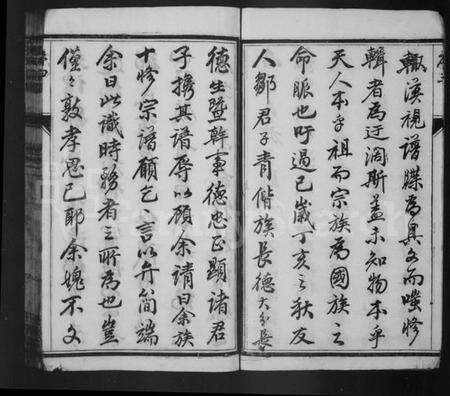 輙漠視譜牒為具文而嗤修
輯者為迂濶斯蓋未知物本乎
天人本乎祖而宗族為國族之
命脈也吁過已歲丁亥之秋友
人鄒君子青偕族長德大分長
德生暨幹事德忠正顯諸君
子攜其譜辱以顧余請曰余族
十修宗譜願乞言以弁簡端
余曰此識時務者之所為也豈
僅々敦孝思已耶余媿不文